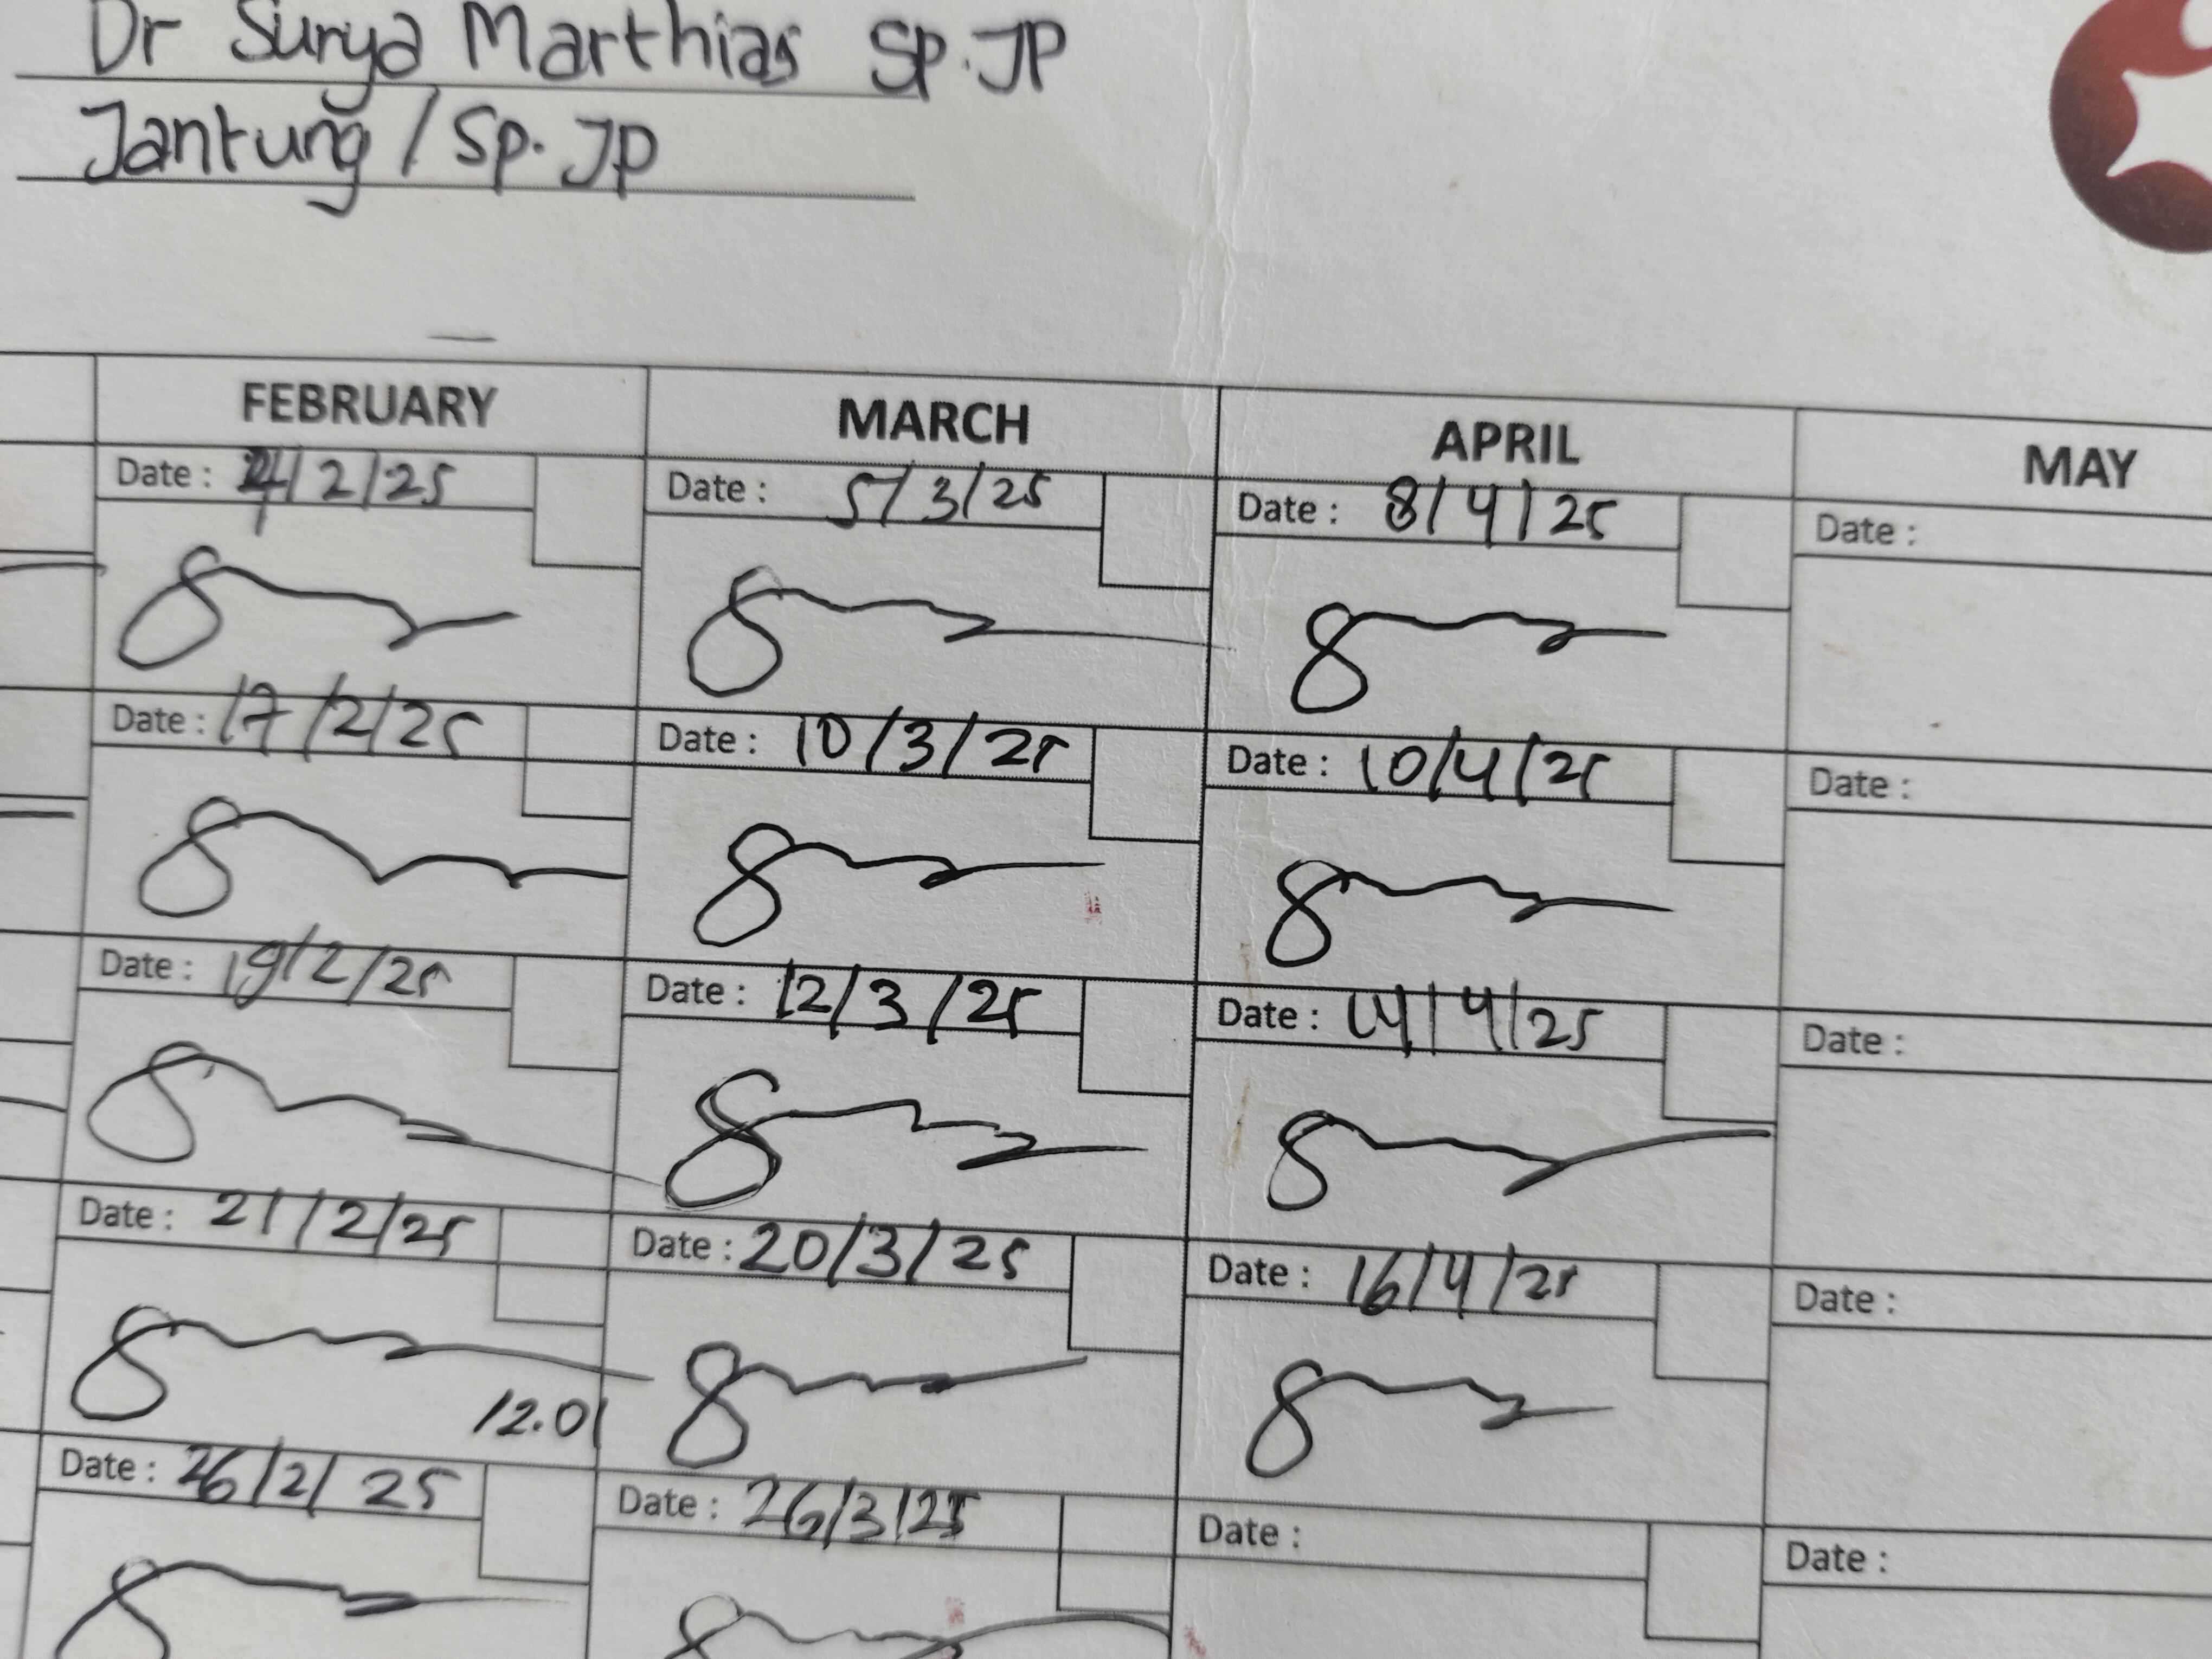 Dr Surya Marthias Sp.JP
Jantung / Sp. JP
FEBRUARY MARCH APRIL MAY
Date : 4/2/25 Date : 5/3/25 Date : 8/4/25 Date :
Date : 17/2/25 Date : 10/3/25 Date : 10/4/25 Date :
Date : 19/2/25 Date : 12/3/25 Date : 14/4/25 Date :
Date : 21/2/25 Date : 20/3/25 Date : 16/4/25 Date :
12.01
Date : 26/2/25 Date : 26/3/25 Date : Date :